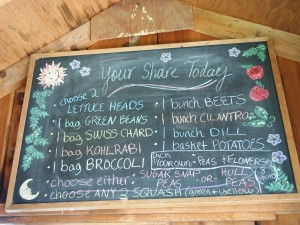 Your Share Today
• choose 2
LETTUCE HEADS
• 1 bag GREEN BEANS
• 1 bag SWISS CHARD
• 1 bag KOHLRABI
• 1 bag BROCCOLI
• 1 bunch BEETS
• 1 bunch CILANTRO
• 1 bunch DILL
• 1 basket POTATOES
PICK YOUR OWN: PEAS & FLOWERS
• choose either: SUGAR SNAP PEAS -OR- HULL PEAS
• choose ANY 3 SQUASH (green + yellow)